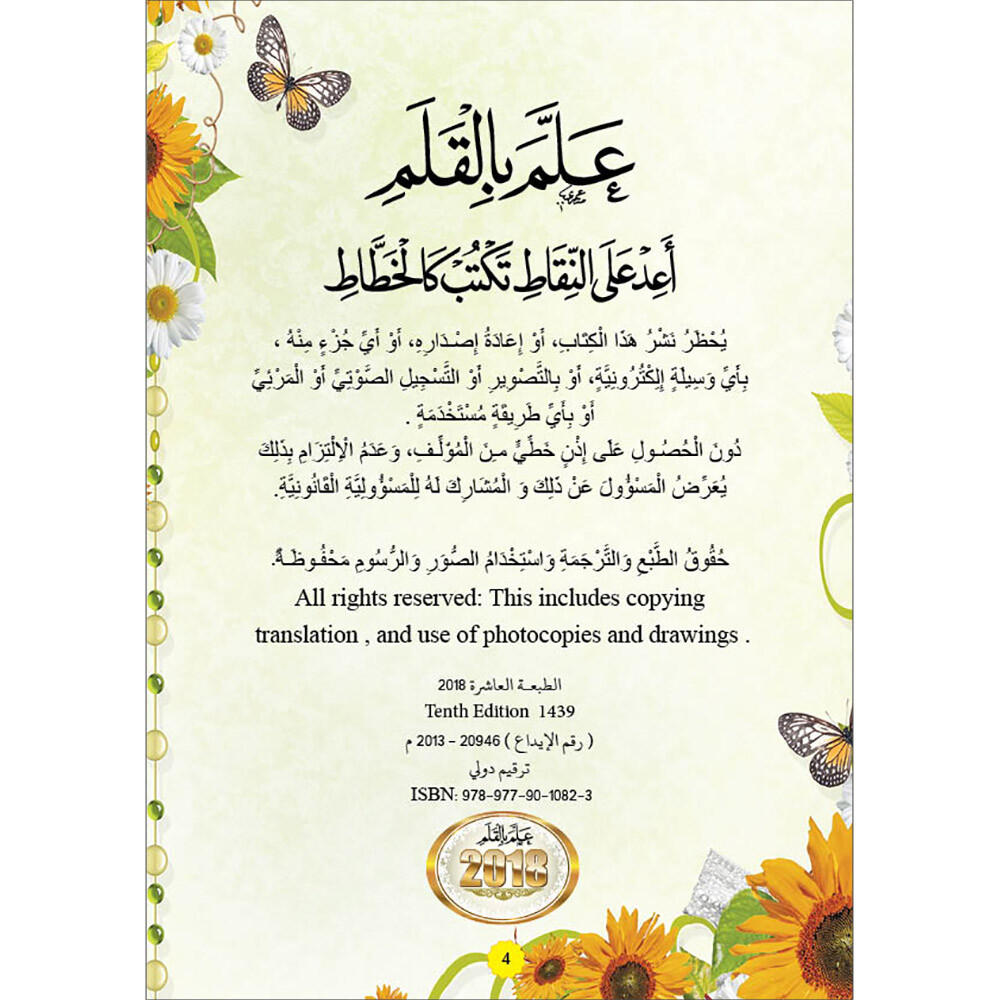 عَلَّمَ بِالْقَلَمِ
أَعِدْ عَلَى النِّقَاطِ تَكْتُبْ كَالْخَطَّاطِ
يُحْظَرُ نَشْرُ هَذَا الْكِتَابِ، أَوْ إِعَادَةُ إِصْدَارِهِ، أَوْ أَيِّ جُزْءٍ مِنْهُ ،
بِأَيِّ وَسِيلَةٍ إِلِكْتُرُونِيَّةٍ، أَوْ بِالتَّصْوِيرِ أَوْ التَّسْجِيلِ الصَّوْتِيِّ أَوْ الْمَرْئِيِّ
أَوْ بِأَيِّ طَرِيقَةٍ مُسْتَخْدَمَةٍ .
دُونَ الْحُصُولِ عَلَى إِذْنٍ خَطِّيٍّ مِنَ الْمُؤَلِّفِ، وَعَدَمُ الْاِلْتِزَامِ بِذَلِكَ
يُعَرِّضُ الْمَسْؤُولَ عَنْ ذَلِكَ وَ الْمُشَارِكَ لَهُ لِلْمَسْؤُولِيَّةِ الْقَانُونِيَّةِ.
حُقُوقُ الطَّبْعِ وَالتَّرْجَمَةِ وَاسْتِخْدَامُ الصُّوَرِ وَالرُّسُومِ مَحْفُوظَةٌ.
All rights reserved: This includes copying
translation , and use of photocopies and drawings .
الطبعة العاشرة 2018
Tenth Edition 1439
( رقم الإيداع ) 20946 – 2013 م
ترقيم دولي
ISBN: 978-977-90-1082-3
عَلَّمَ بِالْقَلَمِ
2018
4